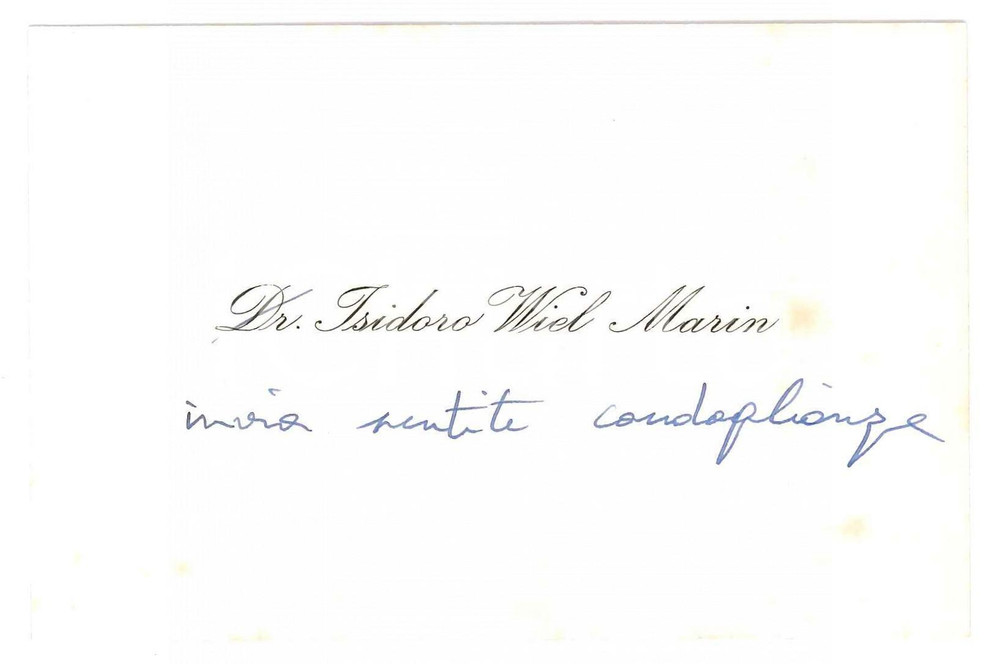 Dr. Isidoro Wiel Marin
invia sentite condoglianze